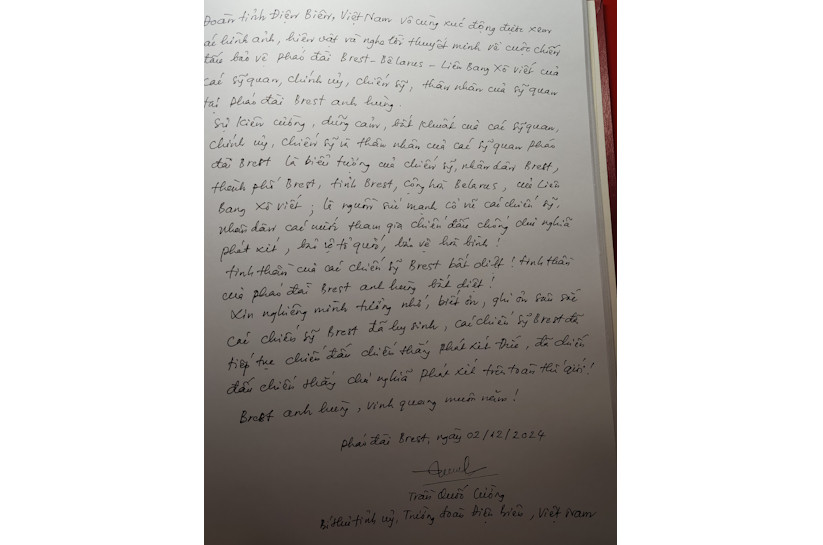 Đoàn tỉnh Điện Biên, Việt Nam vô cùng xúc động được xem
các hình ảnh, hiện vật và nghe lời thuyết minh về cuộc chiến
đấu bảo vệ pháo đài Brest - Bêlarus - Liên Bang Xô Viết của
các sỹ quan, chính uỷ, chiến sỹ, thân nhân của sỹ quan
tại pháo đài Brest anh hùng.
Sự kiên cường, dũng cảm, bất khuất của các sỹ quan,
chính uỷ, chiến sỹ và thân nhân của các sỹ quan pháo
đài Brest là biểu tượng của chiến sỹ, nhân dân Brest,
thành phố Brest, tỉnh Brest, cộng hoà Belarus, của Liên
Bang Xô Viết; là nguồn sức mạnh cổ vũ các chiến sỹ,
nhân dân các nước tham gia chiến đấu chống chủ nghĩa
phát xít, bảo vệ tổ quốc, bảo vệ hoà bình!
Tinh thần của các chiến sỹ Brest bất diệt! Tinh thần
của pháo đài Brest anh hùng bất diệt!
Xin nghiêng mình tưởng nhớ, biết ơn, ghi ơn sâu sắc
các chiến sỹ Brest đã hy sinh, các chiến sỹ Brest đã
tiếp tục chiến đấu chiến thắng phát xít Đức, đã chiến
đấu chiến thắng chủ nghĩa phát xít trên toàn thế giới!
Brest anh hùng, vinh quang muôn năm!
Pháo đài Brest, ngày 02/12/2024
Trần Quốc Cường
Bí thư tỉnh uỷ, Trưởng đoàn Điện Biên, Việt Nam